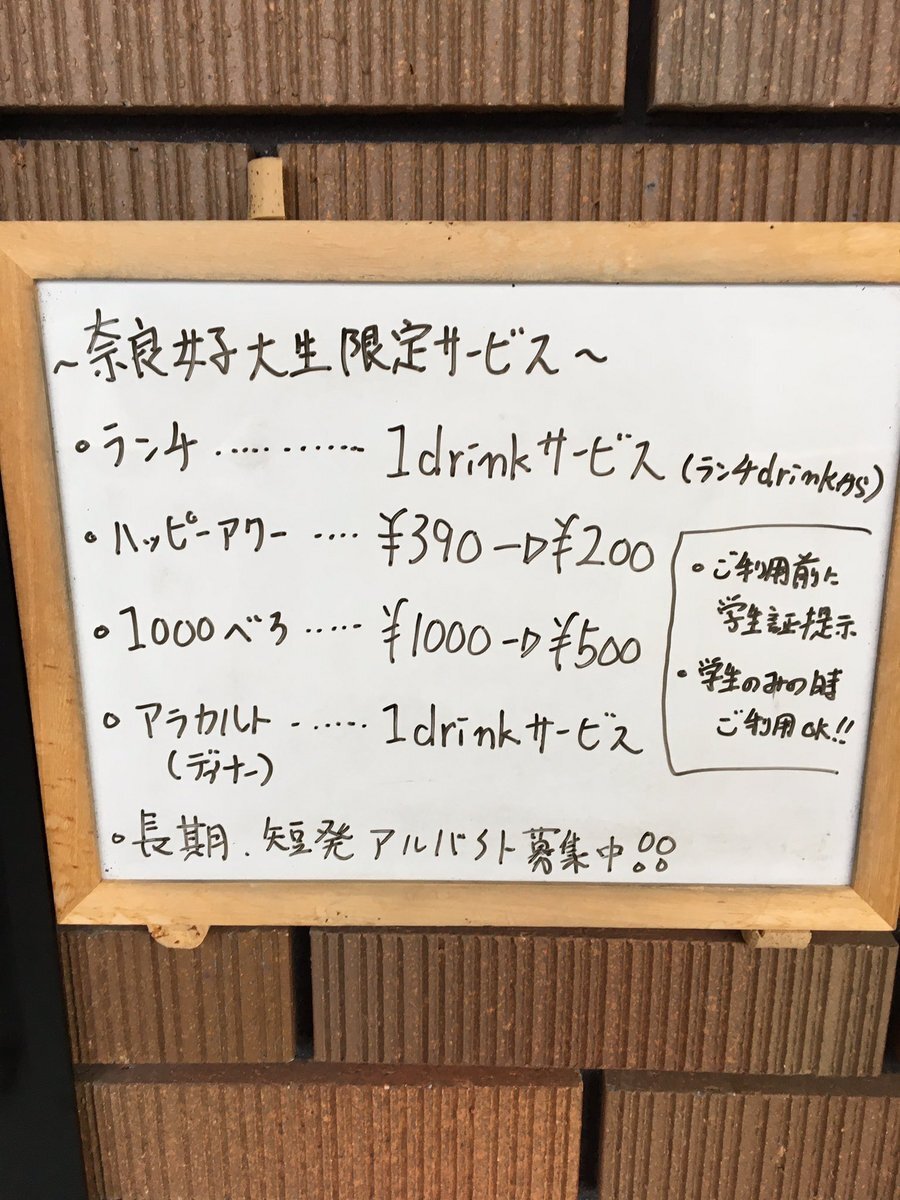 ～奈良女子大生限定サービス～
・ランチ………… 1drinkサービス (ランチdrinkから)
・ハッピーアワー …. ¥390→¥200
・1000べろ …… ¥1000→¥500
・アラカルト ……. 1drinkサービス
(ディナー)
・ご利用前に
学生証提示
・学生のみの時
ご利用OK!!
・長期.短発アルバイト募集中!!